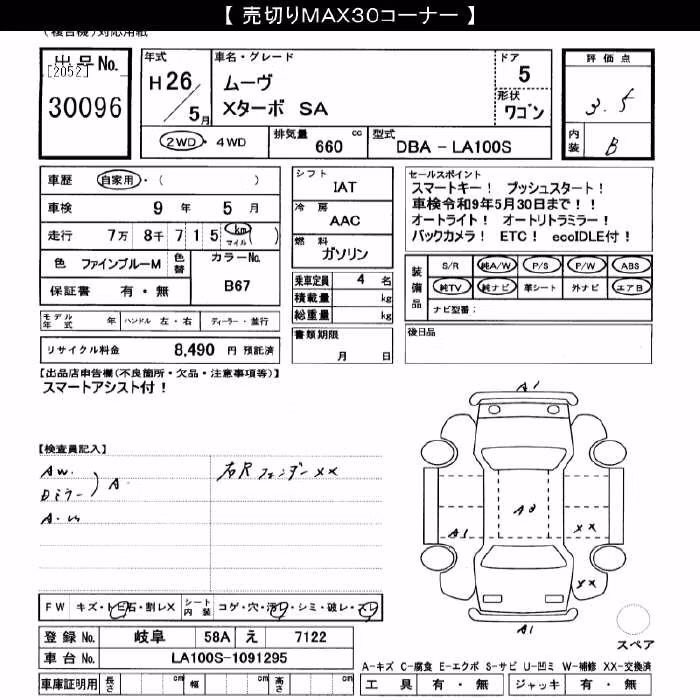 【 売切りMAX30コーナー 】
(複合機)対応用紙
出品No.
[2052]
30096
年式
H26/5月
車名・グレード
ムーヴ
Xターボ SA
ドア
5
形状
ワゴン
評価点
3.5
内装
B
2WD・4WD
排気量 660 cc
型式 DBA - LA100S
車歴 自家用・( )
車検 9 年 5 月
走行 7万 8千 7 1 5 km マイル ( )
色 ファインブルーM 色替 カラーNo. B67
保証書 有・無
モデル年式 年 ハンドル 左・右 ディーラー・並行
リサイクル料金 8,490 円 預託済
シフト
IAT
冷房
AAC
燃料
ガソリン
乗車定員 4 名
積載量 kg
総重量 kg
書類期限
月 日
セールスポイント
スマートキー! プッシュスタート!
車検令和9年5月30日まで!!
オートライト! オートリトラミラー!
バックカメラ! ETC! ecoIDLE付!
装備品
S/R 純A/W P/S P/W ABS
純TV 純ナビ 革シート 外ナビ エアB
ナビ型番:
後日品
【出品店申告欄(不良箇所・欠品・注意事項等)】
スマートアシスト付!
【検査員記入】
AW.
Dミラー ) A
右Rフェンダー XX
A1
A1
A3
XX
XX
A1
FW キズ・トビ石・割レX シート内装 コゲ・穴・汚レ・シミ・破レ・スレ
登録No. 岐阜 58A え 7122
車台No. LA100S-1091295
車庫証明用 長さ cm 幅 cm 高さ cm
スペア
A-キズ C-腐食 E-エクボ S-サビ U-凹ミ W-補修 XX-交換済
工具 有・無 ジャッキ 有・無